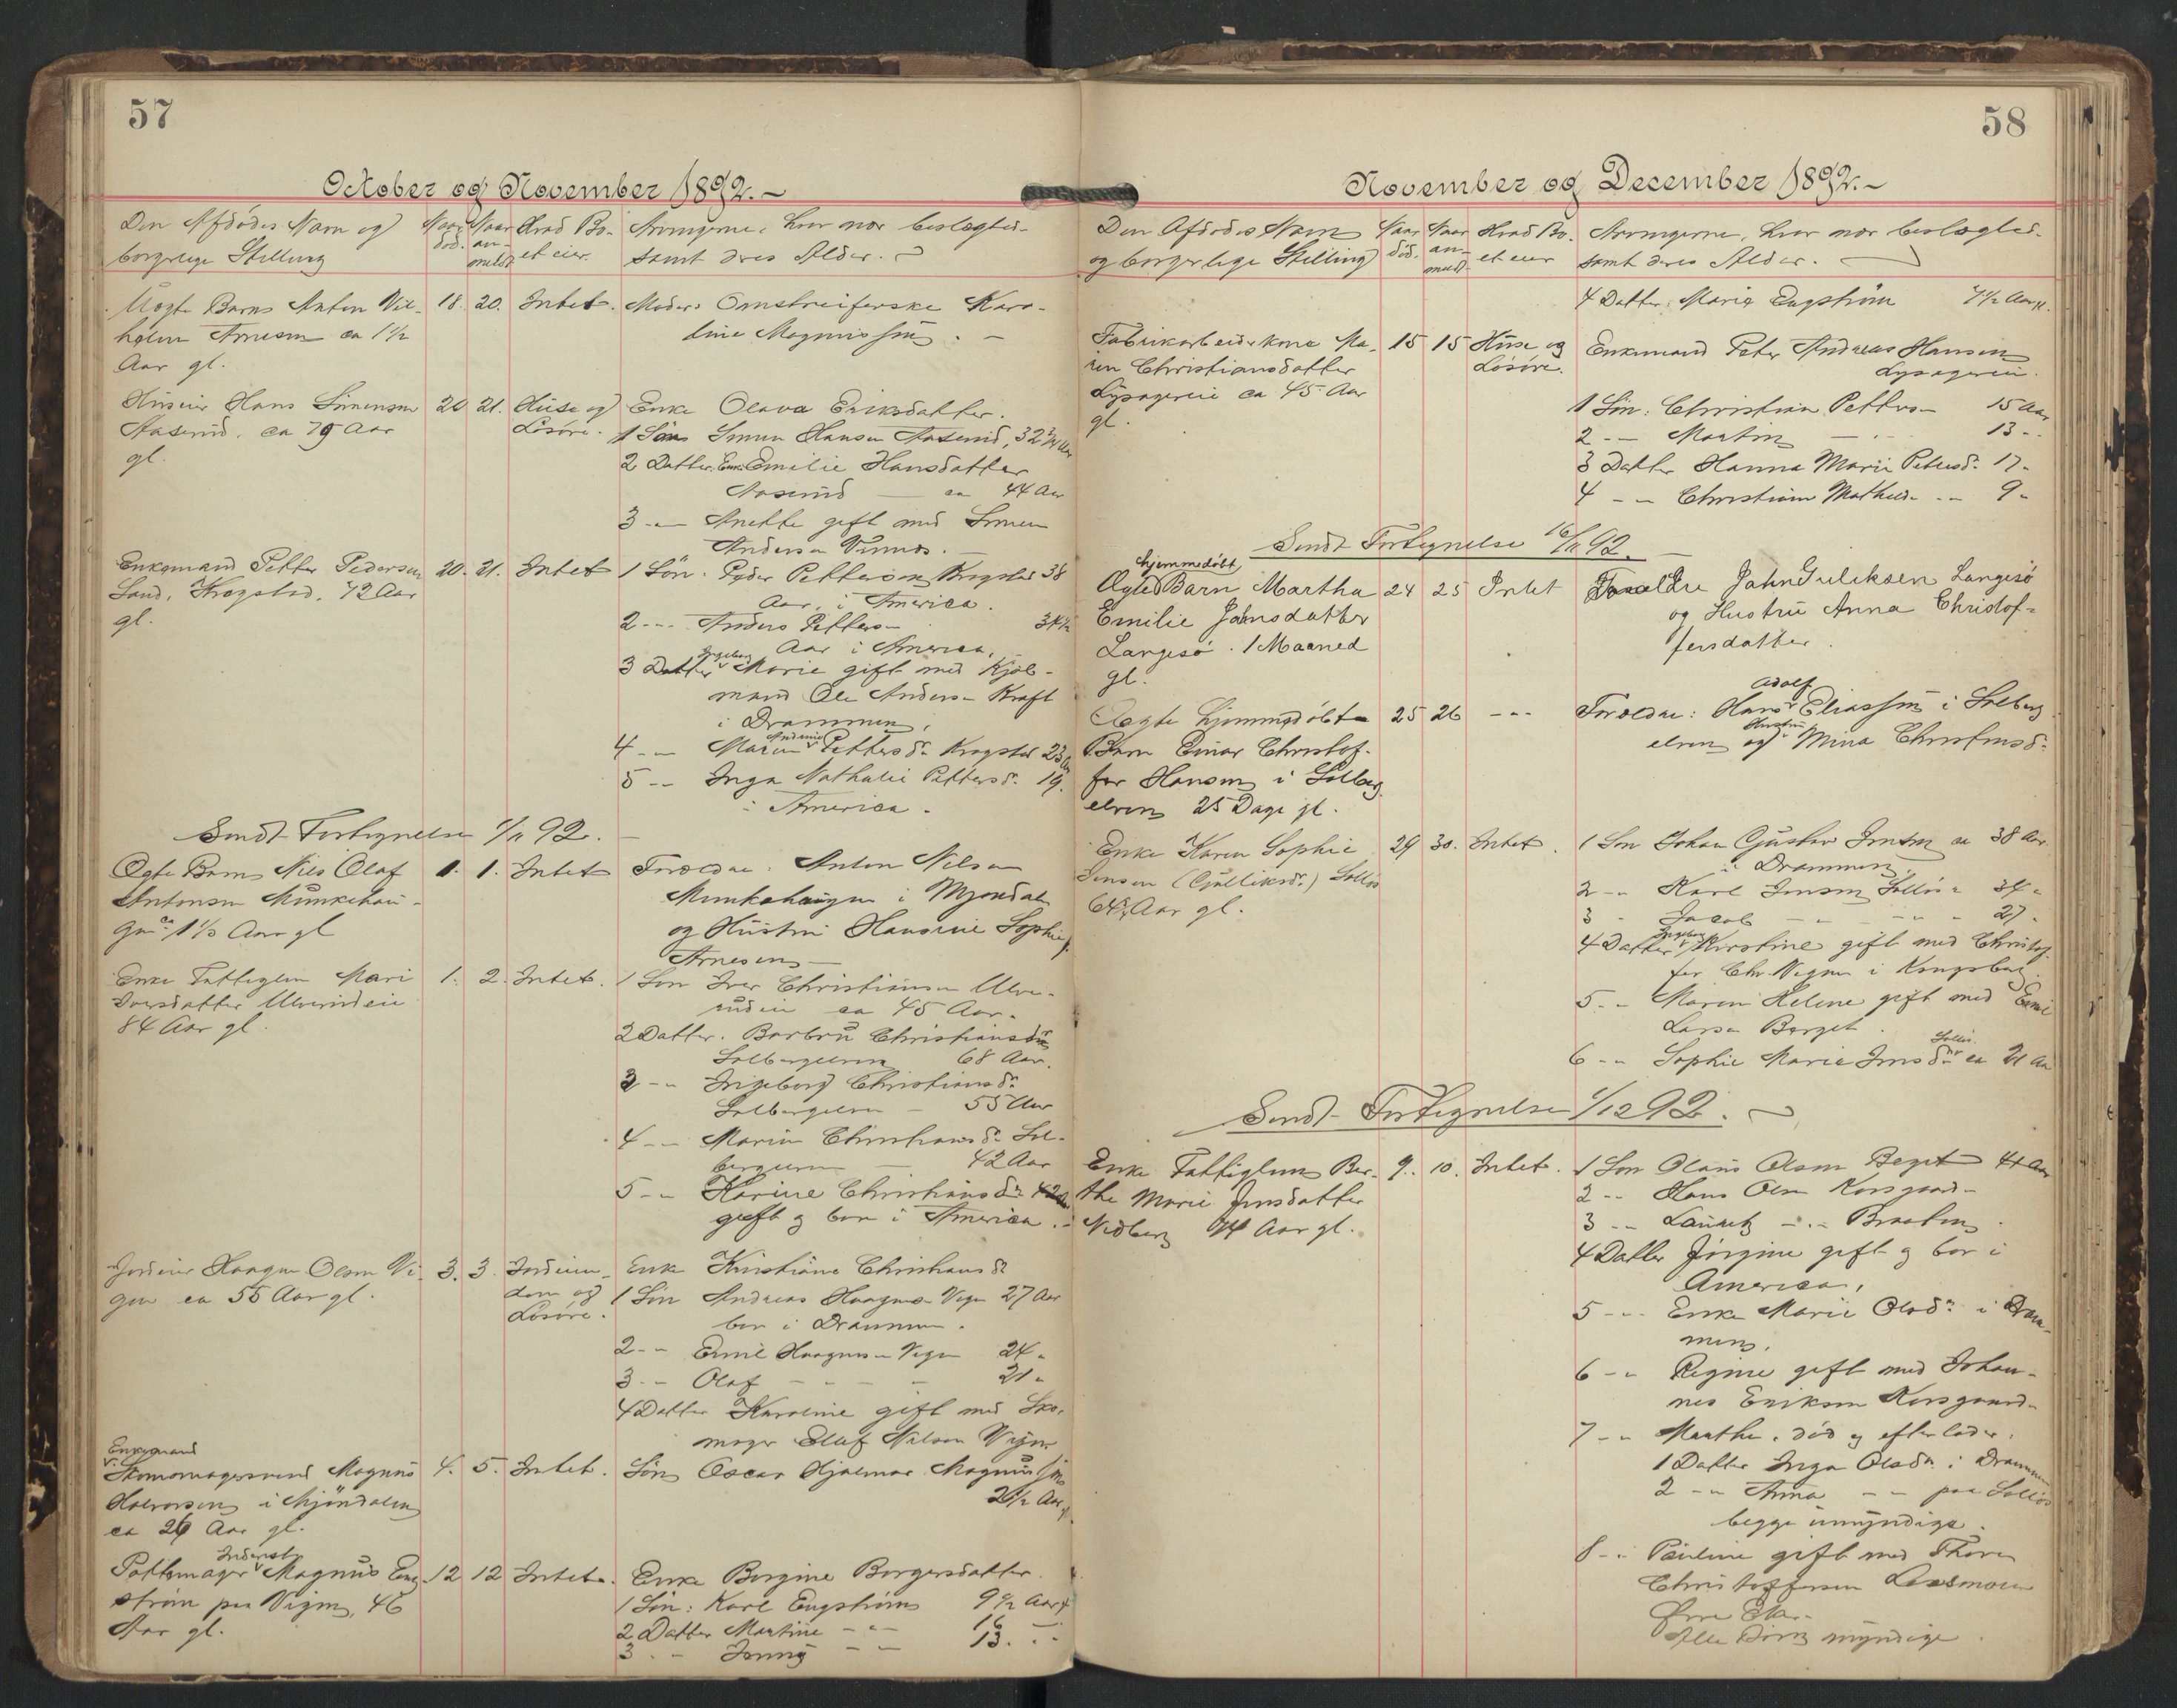 57
October og November 1892.-
Den Afdødes Navn og
borgerlige Stilling
Naar
død.
Naar
an-
meldt
Hvad Bo-
et eier.
Arvingerne, hvor nær beslægted-
samt deres Alder.
Uægte Barn Anton Vil-
helm Arnesen ca 1½
Aar gl.
18. 20. Intet. Moder: Omstreiferske Karo-
line Magnussen. -
Huseier Hans Simensen
Aaserud, ca 79 Aar
gl.
20 21. Huse og
Løsøre.
Enke Olava Eriksdatter.
1 Søn Simen Hansen Aaserud, 32¾ Aar
2 Datter, Enke Emilie Hansdatter
Aaserud - ca 44 Aar
3 -"- Anette gift med Simen
Andersen
Enkemand Petter Pedersen
Sand, Krogstad, 72 Aar
gl.
20. 21. Intet
1 Søn. Peder Pettersen Krogstad 38
Aar, i America.
2 -"- Anders Petters- 34½
Aar i America.
3 Datter Ingeborg Marie gift med Kjøb-
mand Ole Anders- Kraft
i Drammen,
4 -"- Maren Andrine Pettersdr. Krogstad 23 Aar
5 -"- Inga Nathalie Pettersdr. 19.
i America.
Sendt Fortegnelse 1/11 92.
Ægte Barn Nils Olaf
Antonsen Munkehau-
gen ca 1½ Aar gl
1. 1. Intet
Forældre: Anton Nilsen
Munkehaugen i Mjøndal
og Hustru Hansine Sophie
Arnesen -
Enke Fattiglem Mari
Iversdatter Ulverudeie
84 Aar gl.
1. 2. Intet.
1 Søn Iver Christiansen Ulve-
rudeie ca 45 Aar.
2 Datter. Barbru Christiansdr
Solbergelven 68 Aar.
3 -"- Ingeborg Christiansdr.
Solbergelven - 55 Aar
4 -"- Maria Christiansdr. Sol-
bergelven - 42 Aar
5 -"- Karine Christiansdr.
gift og bor i America.
Jordeier Haagen Olsen Vi-
gen ca 55 Aar gl.
3. 3. Jordeien-
dom og
Løsøre.
Enke Kristiane Christiansdr
1 Søn Andreas Haagens- Vigen 27 Aar
bor i Drammen.
2 -"- Emil Haagens- Vigen 24 "
3 -"- Olaf - - - 21 "
4 Datter Karoline gift med Sko-
mager Olaf Nilsen Vigen
Enkemand
Skomagersvend Magnus
Halvorsen i Mjøndalen
ca 26 Aar gl.
4. 5. Intet.
Søn Oscar Hjalmar Magnussen
2½ Aar gl
Inderst
Pottemager Magnus Eng-
strøm paa Vigen, 46
Aar gl.
12 12 Intet.
Enke Borgine Borgersdatter.
1 Søn: Karl Engstrøm 9½ Aar gl
2 Datter Martine -"- 16
3 -"- Jenny -"- 13. -"-
58
November og December 1892.-
Den Afdødes Navn
og borgerlige Stilling
Naar
død.
Naar
an-
meldt
Hvad Bo-
et eier
Arvingerne, hvor nær beslægted-
samt deres Alder.
4 Datter. Maria Engstrøm 7½ Aar gl.
Fabrikarbeiderkone Ma-
ren Christiansdatter
Lysagereie ca 45 Aar
gl.
15 15 Huse og
Løsøre.
Enkemand Peter Andreas Hansen
Lysagereie.
1 Søn: Christian Petters- 15 Aar
2 -"- Martin - " - 13 -"
3 Datter Hanna Marie Petersdr. 17 "
4 -"- Christiane Mathilde -"- 9 "
Sendt Fortegnelse 16/11 92.
hjemmedøbt
Ægte Barn Martha
Emilie Jahnsdatter
Langesø. 1 Maaned
gl.
24 25 Intet
Forældre Jahn Juliksen Langesø
og Hustru Anna Christof-
fersdatter.
Ægte hjemmedøbte
Barn Einar Christof-
fer Hansen i Solberg-
elven 25 Dage gl.
25 26 -"-
Forældre: Hans Adolf Eliassen i Solberg
elven og Hustru Mina Christensdr.
Enke Karen Sophie
Jensen (Gulliksdr.) Solløs
64½ Aar gl.
29 30. Intet.
1 Søn Johan Gustav Jensen ca 38 Aar.
i Drammen
2 -"- Karl Jensen Solløs " 34 "
3 " Jacob -"- -"- " 27 "
4 Datter Ingeborg Kirstine gift med Christof-
fer Chr. Vigen i Kongsberg.
5 -"- Maren Helene gift med Emil
Larsen Berget.
6 -"- Sophie Marie Jensdr. Solløs ca 21 Aar
Sendt Fortegnelse 1/12 92.
Enke Fattiglem Ber-
the Marie Jensdatter
Nedberg 74 Aar gl.
9. 10. Intet.
1 Søn Olaus Olsen Berget 44 Aar
2 -"- Hans Olsen Korsgaard-
3 -"- Lauritz -"- Braaten
4 Datter Jørgine gift og bor i
America,
5 -"- Enke Marie Olsdr. i Dram-
men,
6 -"- Regine gift med Johan-
nes Eriksen Korsgaard-
7 -"- Marthe, død og efterlader,
1 Datter Inga Olsdr. i Drammen
2 -"- Anna -"- paa Solløs
begge umyndige.
8 -"- Pauline gift med Thor-
Christoffersen
Øvre Eker.
Alle Børn myndige.